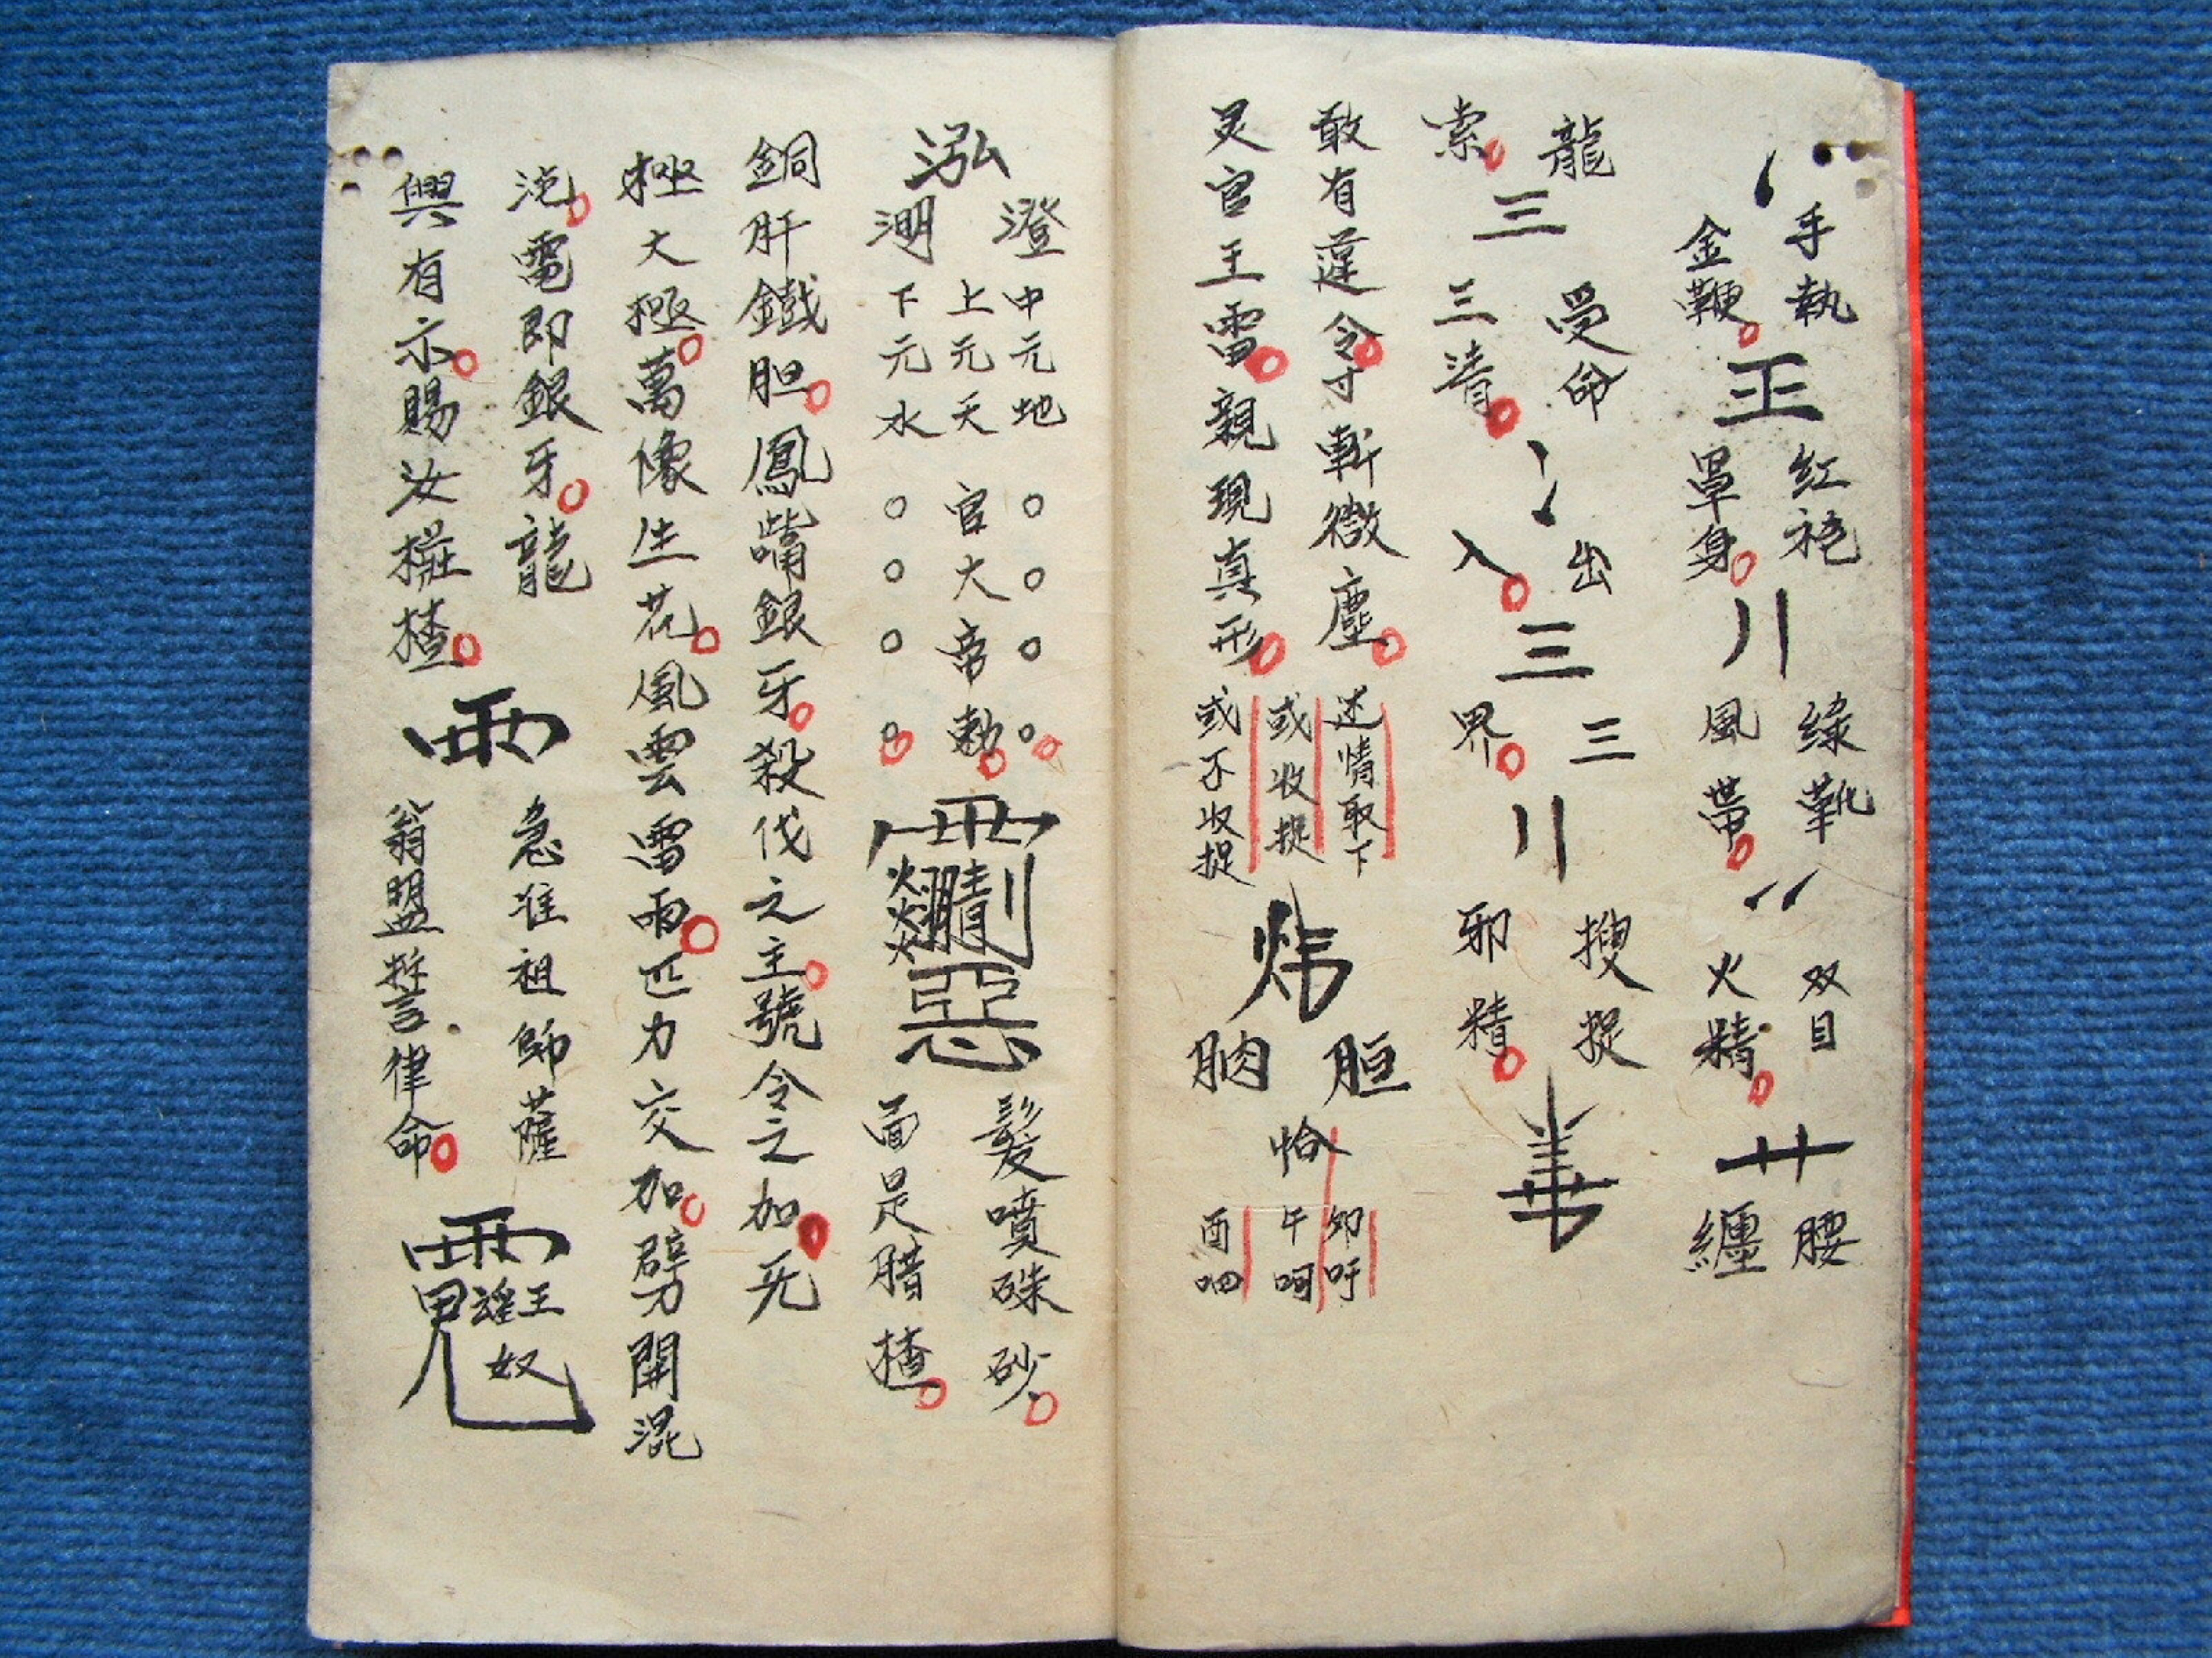 手執
金鞭
王
紅袍
罩身
綠靴
風帶
双目
火精
腰
纏
龍
索
三
受命
三清
出
入
三
三
界
搜捉
邪精
敢有違令寸斬微塵
灵官王雷親現真形
述情取下
或收捉
或不收捉
炜
胆
肭
恰
卯吁
午呵
酉呬
泓
澄
淜
中元地
上元天官大帝勅
下元水
惡
髮噴硃砂
面是腊楂
銅肝鐵胆鳳嘴銀牙殺伐之主號令之加无
極大極萬像生花風雲雷雨匹力交加劈開混
沌電即銀牙龍
與有示賜汝椎楂
雨
急准祖師薩
翁盟誓律命